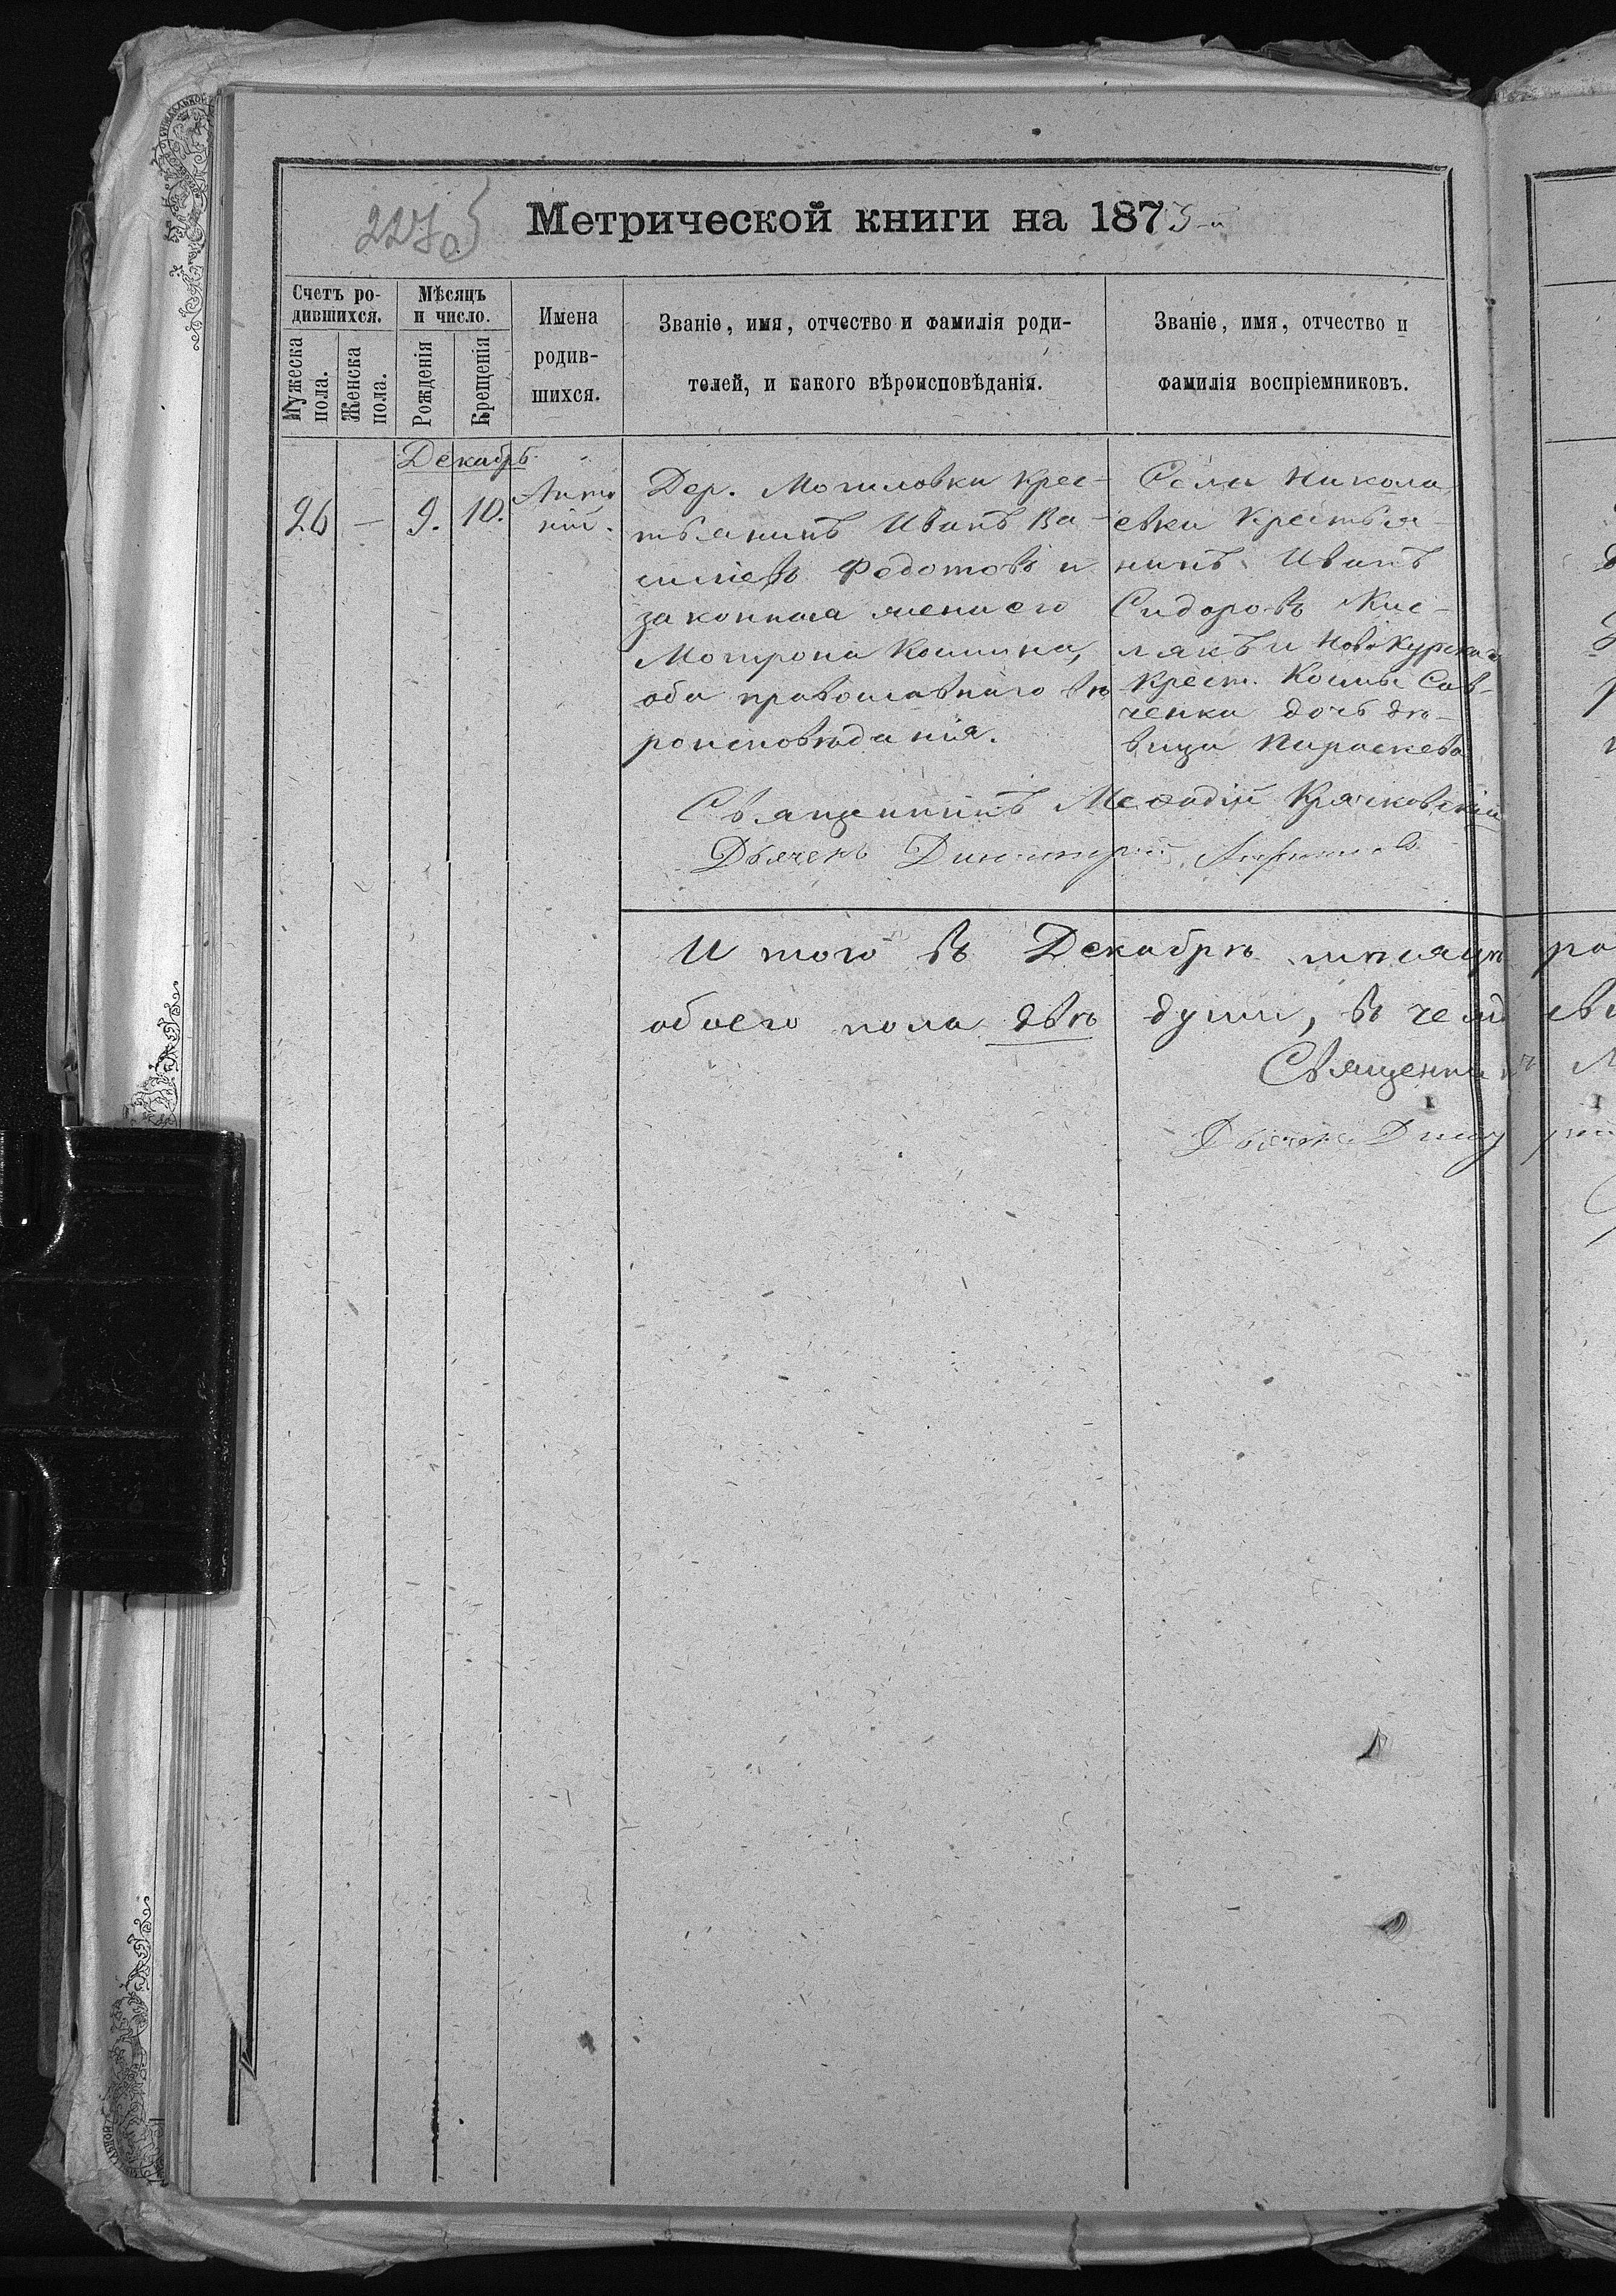 227об
Метрической книги на 1875-й
Счетъ родившихся.
Мужеска пола.
Женска пола.
Мѣсяцъ и число.
Рожденія
Крещенія
Имена родившихся.
Званіе, имя, отчество и фамилія роди-
телей, и какого вѣроисповѣданія.
Званіе, имя, отчество и
фамилія воспріемниковъ.
Декабрь
26 – 9. 10. Анто
ній.
Дер. Могиловки крес-
тьянинъ Иванъ Ва-
силіевъ Федотовъ и
законная жена его
Мотрона Космина,
оба православнаго вѣ
роисповѣданія.
Села Никола
евки крестья
нинъ Иванъ
Сидоровъ Кис-
лякъ и Новокурска
крест. Космы Сав-
ченки дочь дѣ-
вица Параскева
Священникъ Меѳодій Крячковскій
Дьячекъ Димитрій
Итого въ Декабрѣ мѣсяцѣ ро
обоего пола двѣ души, въ чемъ сви
Священникъ М
Дьячекъ Димитрій